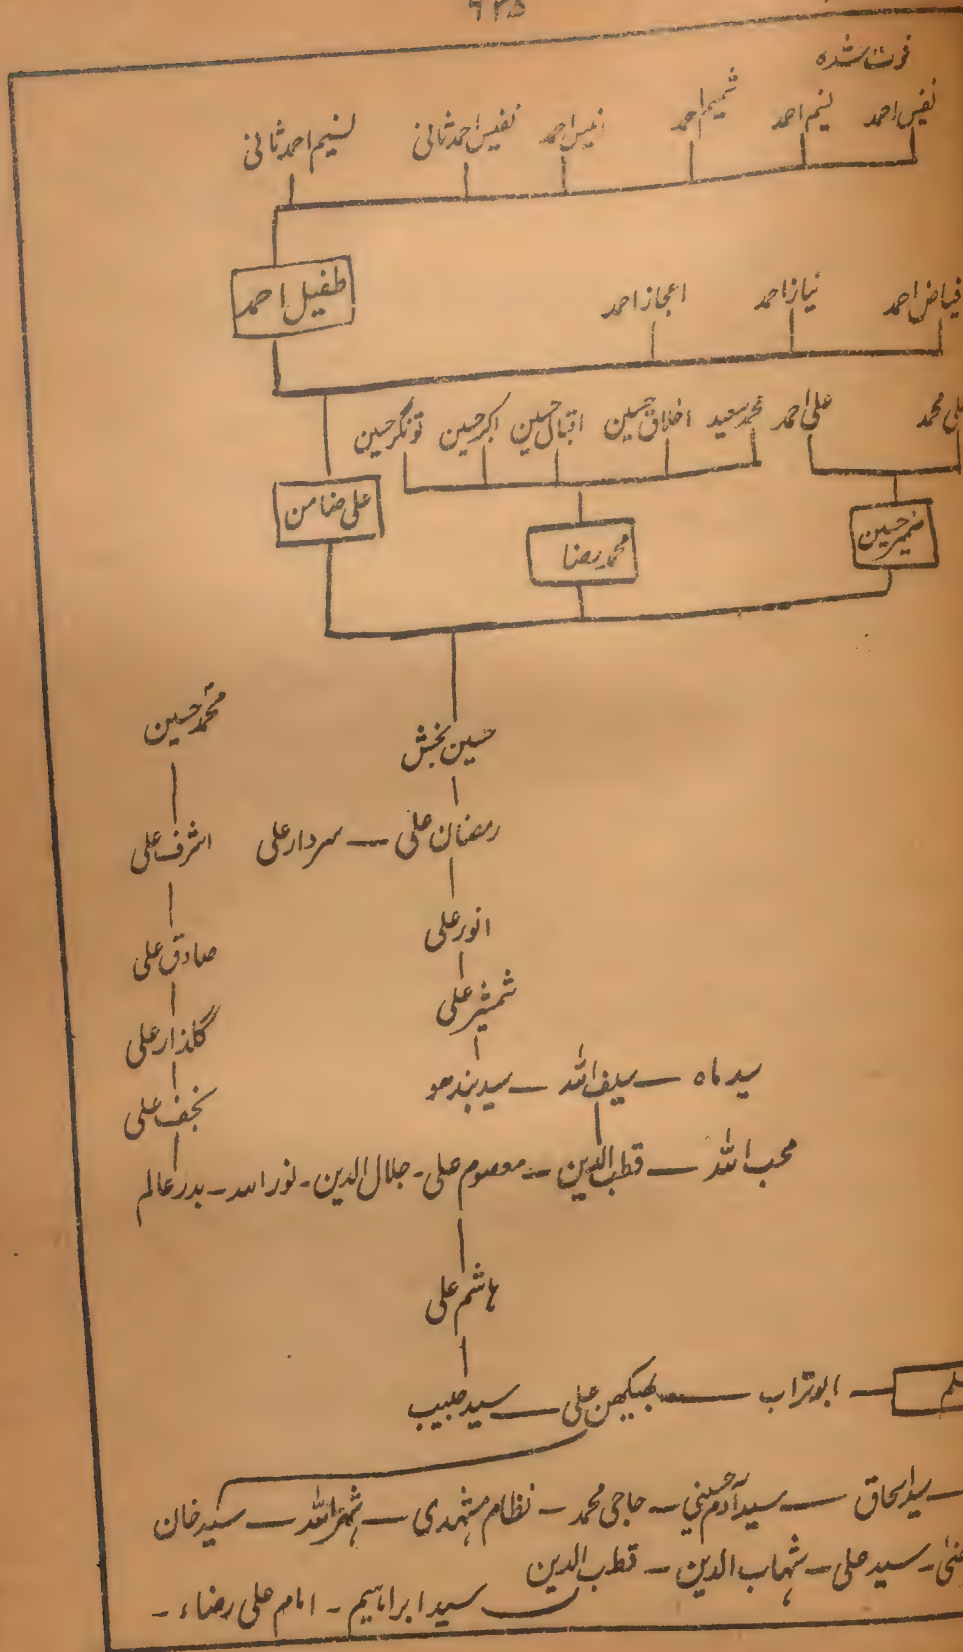 ۹۲۵
فوت شدہ
نفیس احمد نسیم احمد شمیم احمد انیس احمد نفیس احمد ثانی نسیم احمد ثانی
طفیل احمد
فیاض احمد نیاز احمد اعجاز احمد
علی احمد محمد سعید اخلاق حسین اقبال حسین اکبر حسین تونگر حسین
ضمیر حسین محمد رضا علی ضامن
حسین بخش محمد حسین
رمضان علی — سردار علی اشرف علی
انور علی صادق علی
شمشیر علی گلذار علی
سید ماہ — سیف اللہ — سید بندھو نجف علی
محب اللہ — قطب الدین — معصوم علی - جلال الدین - نور اللہ - بدر عالم
ہاشم علی
ابو تراب — بھیکھن علی — سید حبیب
سید اسحاق — سید آدم حسینی — حاجی محمد - نظام مشہدی — شہر اللہ — سید خان
سید علی - شہاب الدین - قطب الدین
سید ابراہیم - امام علی رضاء -